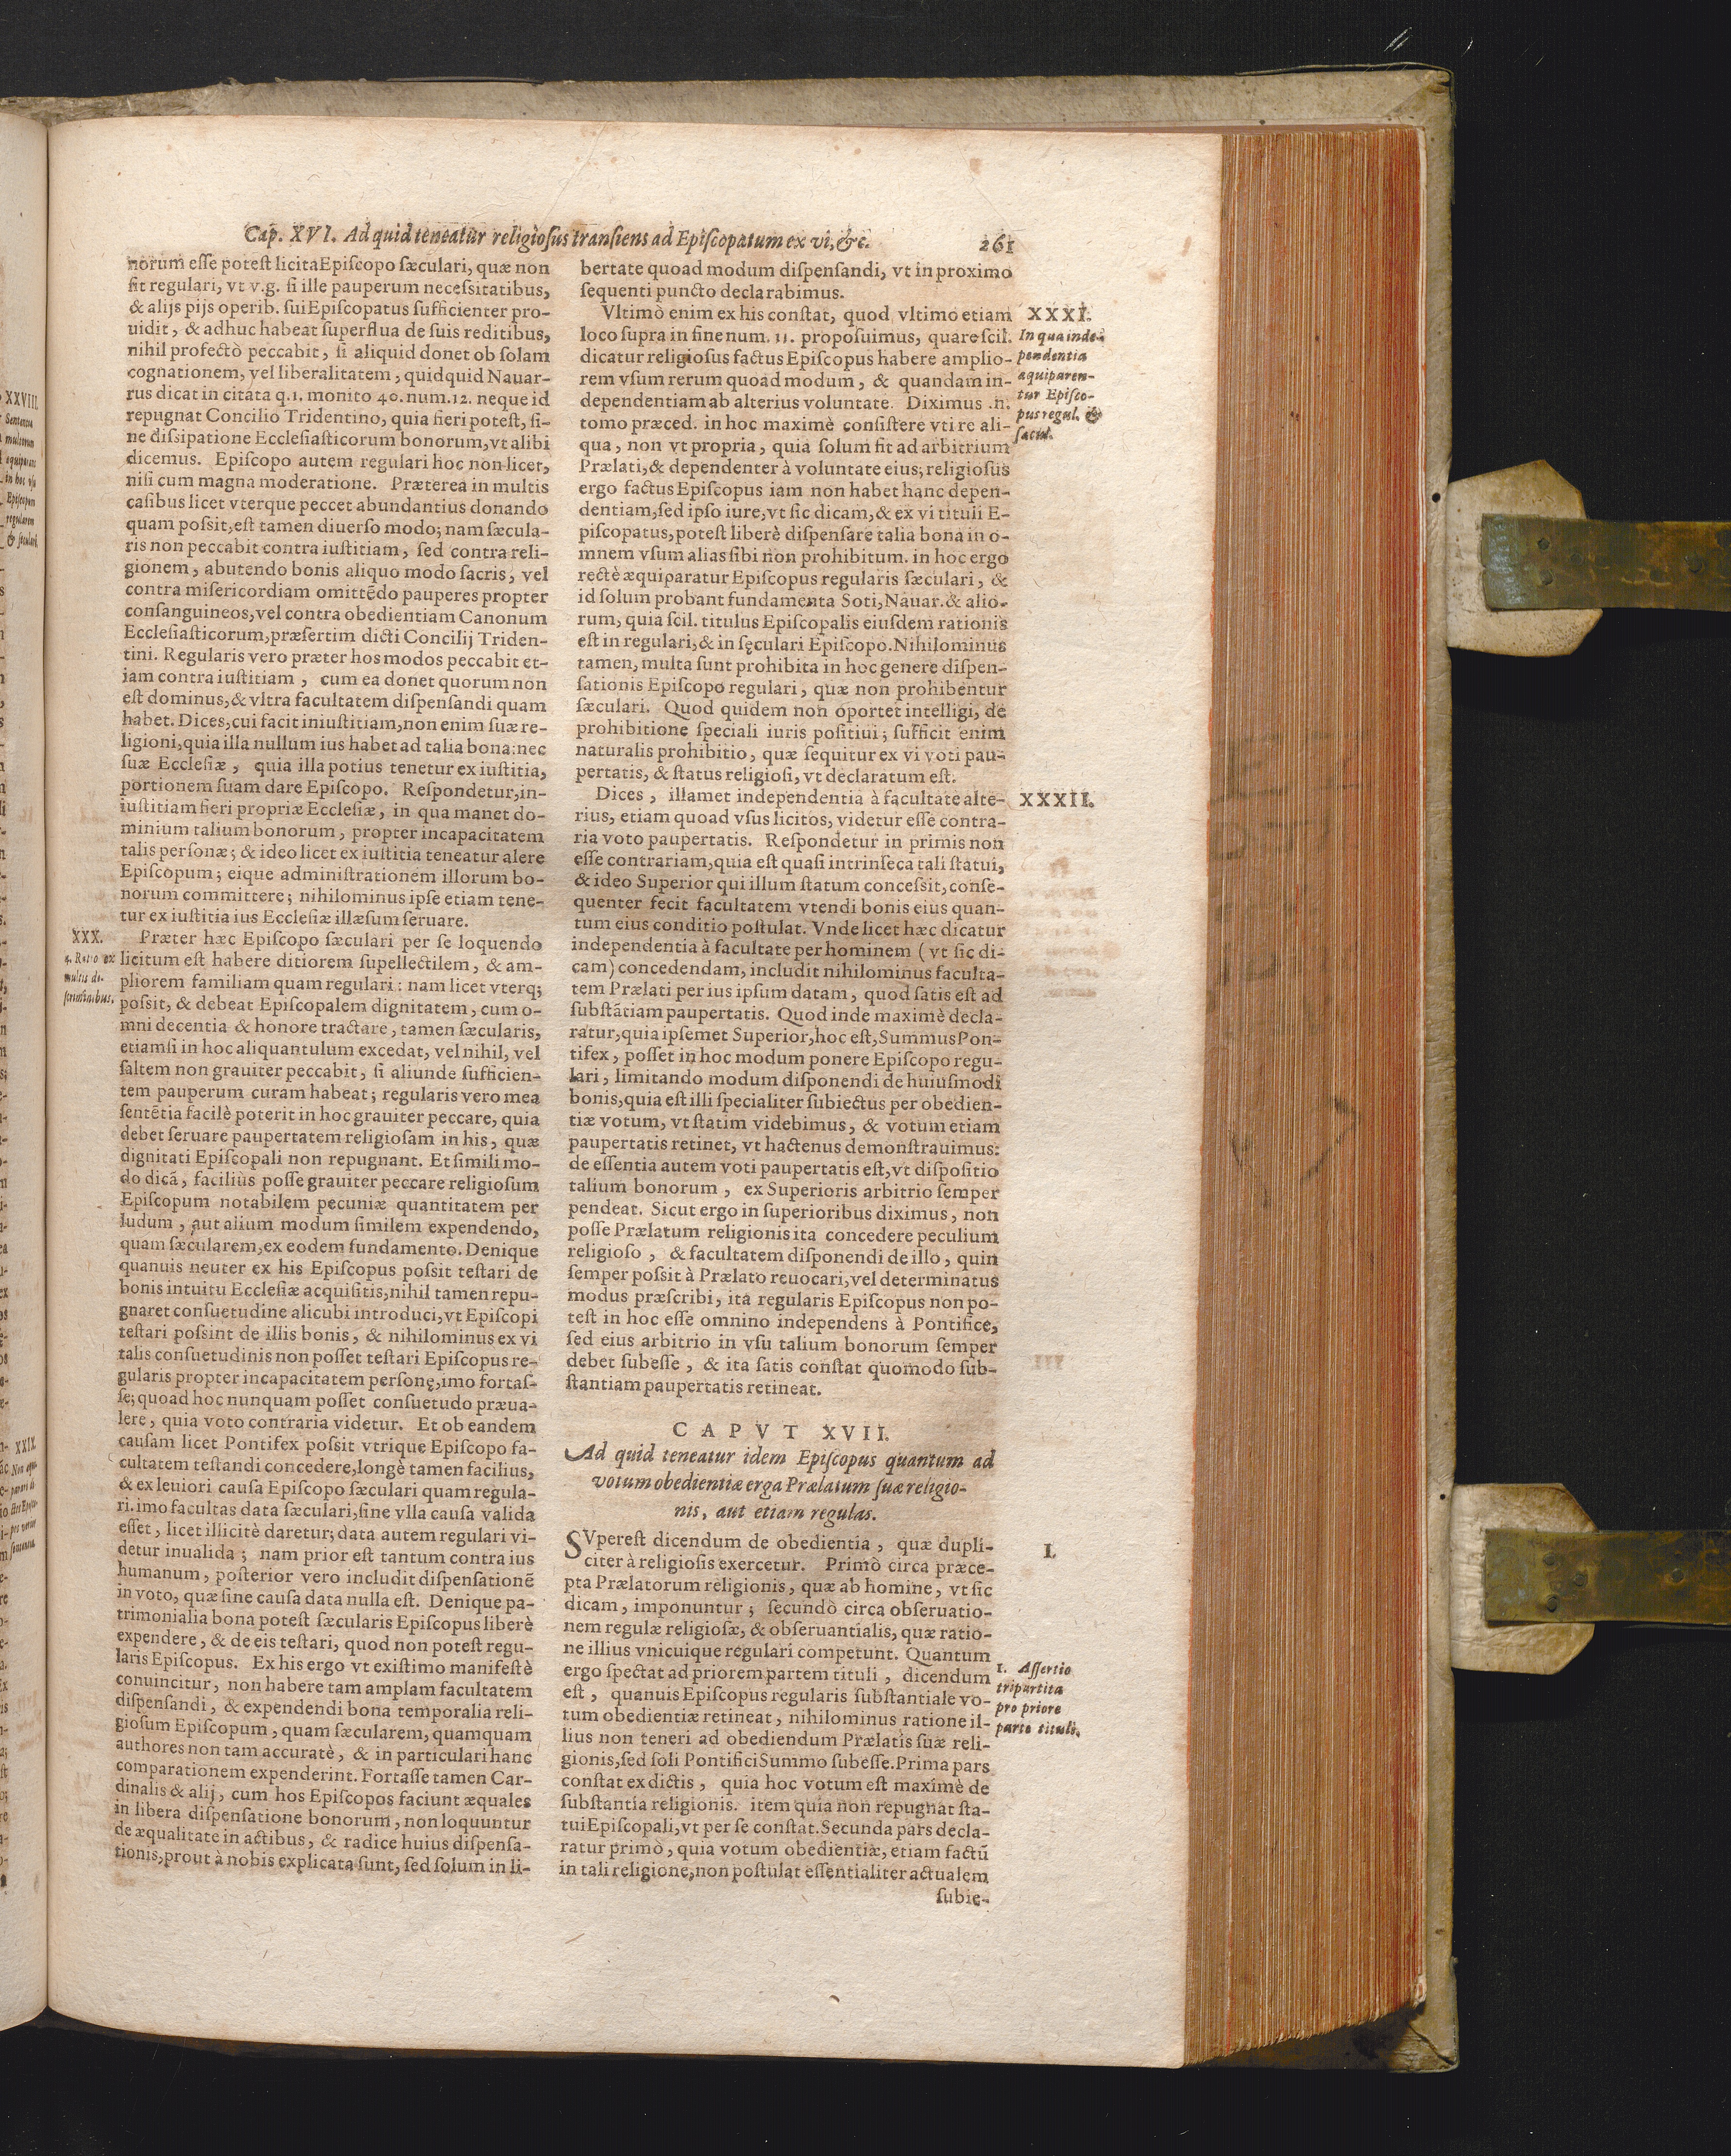 Cap. XVI. Ad quid teneatur religioſus tranſiens ad Epiſcopatum ex vi, &c. 261
norum eſſe poteſt licita Epiſcopo ſæculari, quæ non
ſit regulari, vt v.g. ſi ille pauperum neceſsitatibus,
& alijs pijs operib. ſui Epiſcopatus ſufficienter pro-
uidit, & adhuc habeat ſuperflua de ſuis reditibus,
nihil profectò peccabit, ſi aliquid donet ob ſolam
cognationem, vel liberalitatem, quidquid Nauar-
rus dicat in citata q.1. monito 40. num.12. neque id
repugnat Concilio Tridentino, quia fieri poteſt, ſi-
ne diſsipatione Eccleſiaſticorum bonorum, vt alibi
dicemus. Epiſcopo autem regulari hoc non licet,
niſi cum magna moderatione. Præterea in multis
caſibus licet vterque peccet abundantius donando
quam poſsit, eſt tamen diuerſo modo; nam ſæcula-
ris non peccabit contra iuſtitiam, ſed contra reli-
gionem, abutendo bonis aliquo modo ſacris, vel
contra miſericordiam omittẽdo pauperes propter
conſanguineos, vel contra obedientiam Canonum
Eccleſiaſticorum, præſertim dicti Concilij Triden-
tini. Regularis vero præter hos modos peccabit et-
iam contra iuſtitiam, cum ea donet quorum non
eſt dominus, & vltra facultatem diſpenſandi quam
habet. Dices, cui facit iniuſtitiam, non enim ſuæ re-
ligioni, quia illa nullum ius habet ad talia bona: nec
ſuæ Eccleſiæ, quia illa potius tenetur ex iuſtitia,
portionem ſuam dare Epiſcopo. Reſpondetur, in-
iuſtitiam fieri propriæ Eccleſiæ, in qua manet do-
minium talium bonorum, propter incapacitatem
talis perſonæ; & ideo licet ex iuſtitia teneatur alere
Epiſcopum; eique adminiſtrationem illorum bo-
norum committere; nihilominus ipſe etiam tene-
tur ex iuſtitia ius Eccleſiæ illæſum ſeruare.
XXX.
4. Ratio ex
multis de-
ſcriminibus.
Præter hæc Epiſcopo ſæculari per ſe loquendo
licitum eſt habere ditiorem ſupellectilem, & am-
pliorem familiam quam regulari: nam licet vterq;
poſsit, & debeat Epiſcopalem dignitatem, cum o-
mni decentia & honore tractare, tamen ſæcularis,
etiamſi in hoc aliquantulum excedat, vel nihil, vel
ſaltem non grauiter peccabit, ſi aliunde ſufficien-
tem pauperum curam habeat; regularis vero mea
ſentẽtia facilè poterit in hoc grauiter peccare, quia
debet ſeruare paupertatem religioſam in his, quæ
dignitati Epiſcopali non repugnant. Et ſimili mo-
do dicã, facilius poſſe grauiter peccare religioſum
Epiſcopum notabilem pecuniæ quantitatem per
ludum, aut alium modum ſimilem expendendo,
quam ſæcularem, ex eodem fundamento. Denique
quanuis neuter ex his Epiſcopus poſsit teſtari de
bonis intuitu Eccleſiæ acquiſitis, nihil tamen repu-
gnaret conſuetudine alicubi introduci, vt Epiſcopi
teſtari poſsint de illis bonis, & nihilominus ex vi
talis conſuetudinis non poſſet teſtari Epiſcopus re-
gularis propter incapacitatem perſonę, imo fortaſ-
ſe; quoad hoc nunquam poſſet conſuetudo præua-
lere, quia voto contraria videtur. Et ob eandem
cauſam licet Pontifex poſsit vtrique Epiſcopo fa-
cultatem teſtandi concedere, longè tamen facilius,
& ex leuiori cauſa Epiſcopo ſæculari quam regula-
ri. imo facultas data ſæculari, ſine vlla cauſa valida
eſſet, licet illicitè daretur; data autem regulari vi-
detur inualida; nam prior eſt tantum contra ius
humanum, poſterior vero includit diſpenſationẽ
in voto, quæ ſine cauſa data nulla eſt. Denique pa-
trimonialia bona poteſt ſæcularis Epiſcopus liberè
expendere, & de eis teſtari, quod non poteſt regu-
laris Epiſcopus. Ex his ergo vt exiſtimo manifeſtè
conuincitur, non habere tam amplam facultatem
diſpenſandi, & expendendi bona temporalia reli-
gioſum Epiſcopum, quam ſæcularem, quamquam
authores non tam accuratè, & in particulari hanc
comparationem expenderint. Fortaſſe tamen Car-
dinalis & alij, cum hos Epiſcopos faciunt æquales
in libera diſpenſatione bonorum, non loquuntur
de æqualitate in actibus, & radice huius diſpenſa-
tionis, prout à nobis explicata ſunt, ſed ſolum in li-
bertate quoad modum diſpenſandi, vt in proximo
ſequenti puncto declarabimus.
XXXI.
In qua inde-
pendentia
æquiparen-
tur Epiſco-
pus regul. &
ſæcul.
Vltimò enim ex his conſtat, quod vltimo etiam
loco ſupra in fine num. 11. propoſuimus, quare ſcil.
dicatur religioſus factus Epiſcopus habere amplio-
rem vſum rerum quoad modum, & quandam in-
dependentiam ab alterius voluntate. Diximus .n.
tomo præced. in hoc maximè conſiſtere vti re ali-
qua, non vt propria, quia ſolum fit ad arbitrium
Prælati, & dependenter à voluntate eius; religioſus
ergo factus Epiſcopus iam non habet hanc depen-
dentiam, ſed ipſo iure, vt ſic dicam, & ex vi tituli E-
piſcopatus, poteſt liberè diſpenſare talia bona in o-
mnem vſum alias ſibi non prohibitum. in hoc ergo
rectè æquiparatur Epiſcopus regularis ſæculari, &
id ſolum probant fundamenta Soti, Nauar. & alio-
rum, quia ſcil. titulus Epiſcopalis eiuſdem rationis
eſt in regulari, & in ſęculari Epiſcopo. Nihilominus
tamen, multa ſunt prohibita in hoc genere diſpen-
ſationis Epiſcopo regulari, quæ non prohibentur
ſæculari. Quod quidem non oportet intelligi, de
prohibitione ſpeciali iuris poſitiui; ſufficit enim
naturalis prohibitio, quæ ſequitur ex vi voti pau-
pertatis, & ſtatus religioſi, vt declaratum eſt.
XXXII.
Dices, illamet independentia à facultate alte-
rius, etiam quoad vſus licitos, videtur eſſe contra-
ria voto paupertatis. Reſpondetur in primis non
eſſe contrariam, quia eſt quaſi intrinſeca tali ſtatui,
& ideo Superior qui illum ſtatum conceſsit, conſe-
quenter fecit facultatem vtendi bonis eius quan-
tum eius conditio poſtulat. Vnde licet hæc dicatur
independentia à facultate per hominem (vt ſic di-
cam) concedendam, includit nihilominus faculta-
tem Prælati per ius ipſum datam, quod ſatis eſt ad
ſubſtãtiam paupertatis. Quod inde maximè decla-
ratur, quia ipſemet Superior, hoc eſt, Summus Pon-
tifex, poſſet in hoc modum ponere Epiſcopo regu-
lari, limitando modum diſponendi de huiuſmodi
bonis, quia eſt illi ſpecialiter ſubiectus per obedien-
tiæ votum, vt ſtatim videbimus, & votum etiam
paupertatis retinet, vt hactenus demonſtrauimus:
de eſſentia autem voti paupertatis eſt, vt diſpoſitio
talium bonorum, ex Superioris arbitrio ſemper
pendeat. Sicut ergo in ſuperioribus diximus, non
poſſe Prælatum religionis ita concedere peculium
religioſo, & facultatem diſponendi de illo, quin
ſemper poſsit à Prælato reuocari, vel determinatus
modus præſcribi, ita regularis Epiſcopus non po-
teſt in hoc eſſe omnino independens à Pontifice,
ſed eius arbitrio in vſu talium bonorum ſemper
debet ſubeſſe, & ita ſatis conſtat quomodo ſub-
ſtantiam paupertatis retineat.
CAPVT XVII.
Ad quid teneatur idem Epiſcopus quantum ad
votum obedientiæ erga Prælatum ſuæ religio-
nis, aut etiam regulas.
I.
SVpereſt dicendum de obedientia, quæ dupli-
citer à religioſis exercetur. Primò circa præce-
pta Prælatorum religionis, quæ ab homine, vt ſic
dicam, imponuntur; ſecundò circa obſeruatio-
nem regulæ religioſæ, & obſeruantialis, quæ ratio-
ne illius vnicuique regulari competunt. Quantum
1. Aſſertio
tripartita
pro priore
parte tituli.
ergo ſpectat ad priorem partem tituli, dicendum
eſt, quanuis Epiſcopus regularis ſubſtantiale vo-
tum obedientiæ retineat, nihilominus ratione il-
lius non teneri ad obediendum Prælatis ſuæ reli-
gionis, ſed ſoli Pontifici Summo ſubeſſe. Prima pars
conſtat ex dictis, quia hoc votum eſt maximè de
ſubſtantia religionis. item quia non repugnat ſta-
tui Epiſcopali, vt per ſe conſtat. Secunda pars decla-
ratur primò, quia votum obedientiæ, etiam factũ
in tali religione, non poſtulat eſſentialiter actualem
ſubie-